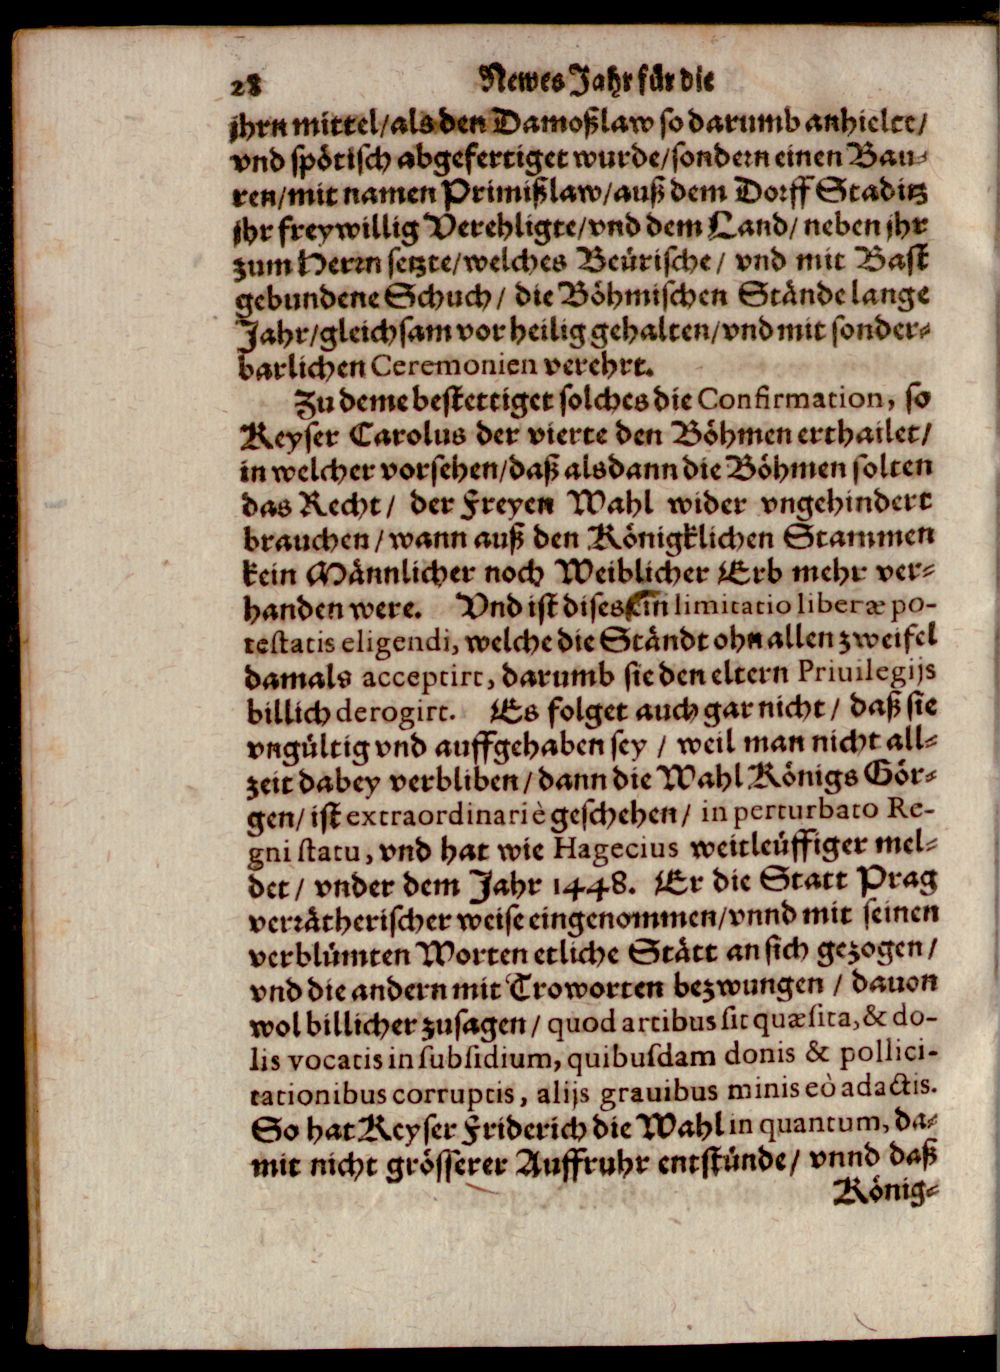 28 Newes Jahr für die
jhrn mittel/ als den Damoßlaw so darumb anhielte/
vnd spötisch abgefertiget wurde/ sondern einen Bau-
ren/ mit namen Primißlaw/ auß dem Dorff Staditz
jhr freywillig Verehligte/ vnd dem Land/ neben jhr
zum Herrn setzte/ welches Beürische/ vnd mit Bast
gebundene Schuch/ die Böhmischen Stände lange
Jahr/ gleichsam vor heilig gehalten/ vnd mit sonder-
barlichen Ceremonien verehrt.
Zu deme bestettiget solches die Confirmation, so
Keyser Carolus der vierte den Böhmen erthailet/
in welcher vorsehen/ daß alsdann die Böhmen solten
das Recht/ der Freyen Wahl wider vngehindert
brauchen/ wann auß den Königklichen Stammen
kein Männlicher noch Weiblicher Erb mehr ver-
handen were. Vnd ist dises ein limitatio liberæ po-
testatis eligendi, welche die Ständt ohn allen zweifel
damals acceptirt, darumb sie den eltern Priuilegijs
billich derogirt. Es folget auch gar nicht/ daß sie
vngültig vnd auffgehaben sey/ weil man nicht all-
zeit dabey verbliben/ dann die Wahl Königs Gör-
gen/ ist extraordinariè geschehen/ in perturbato Re-
gni statu, vnd hat wie Hagecius weitleüffiger mel-
det/ vnder dem Jahr 1448. Er die Statt Prag
verrätherischer weise eingenommen/ vnnd mit seinen
verblümten Worten etliche Stätt an sich gezogen/
vnd die andern mit Troworten bezwungen/ dauon
wol billicher zusagen/ quod artibus sit quæsita, & do-
lis vocatis in subsidium, quibusdam donis & pollici-
tationibus corruptis, alijs grauibus minis eò adactis.
So hat Keyser Friderich die Wahl in quantum, da-
mit nicht grösserer Auffruhr entstünde/ vnnd daß
König-